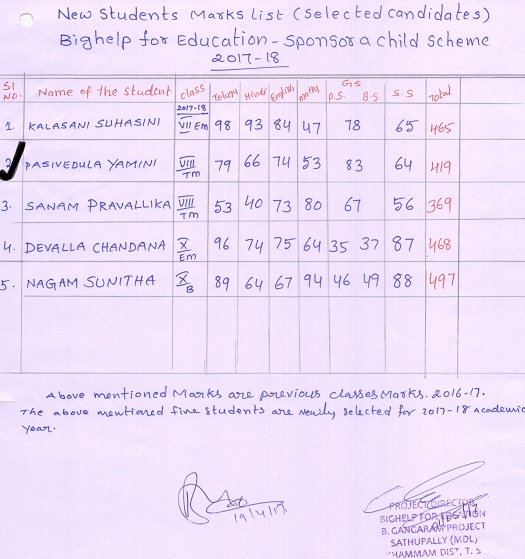 New Students Marks List (Selected candidates)
Bighelp for Education - Sponsor a Child Scheme
2017-18
Sl No. Name of the Student class Telugu Hindi English maths G.S P.S. B.S S.S Total
2017-18
1. KALASANI SUHASINI VII Em 98 93 84 47 78 65 465
2 PASIVEDULA YAMINI VIII TM 79 66 74 53 83 64 419
3. SANAM PRAVALLIKA VIII TM 53 40 73 80 67 56 369
4. DEVALLA CHANDANA X Em 96 74 75 64 35 37 87 468
5. NAGAM SUNITHA X B 89 64 67 94 46 49 88 497
Above mentioned Marks are previous classes Marks. 2016-17.
The above mentioned five Students are Newly Selected for 2017-18 Academic
year.
19/4/17
PROJECT DIRECTOR
BIGHELP FOR
B. GANGARAM PROJECT
SATHUPALLY (MDL)
KHAMMAM DIST, T.S